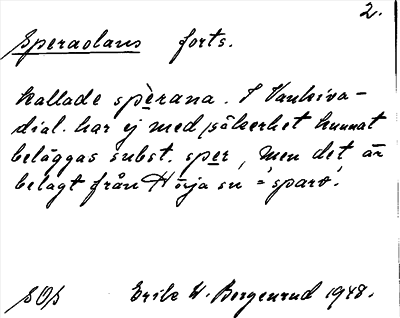 2.
Speraolans forts.
kallade spèrana. I Vankiva-
dial. har ej med säkerhet kunnat
beläggas subst. sper, men det är
belagt från Hörja sn = 'sparv'.
SOS Erik W. Bergenrud 1948.